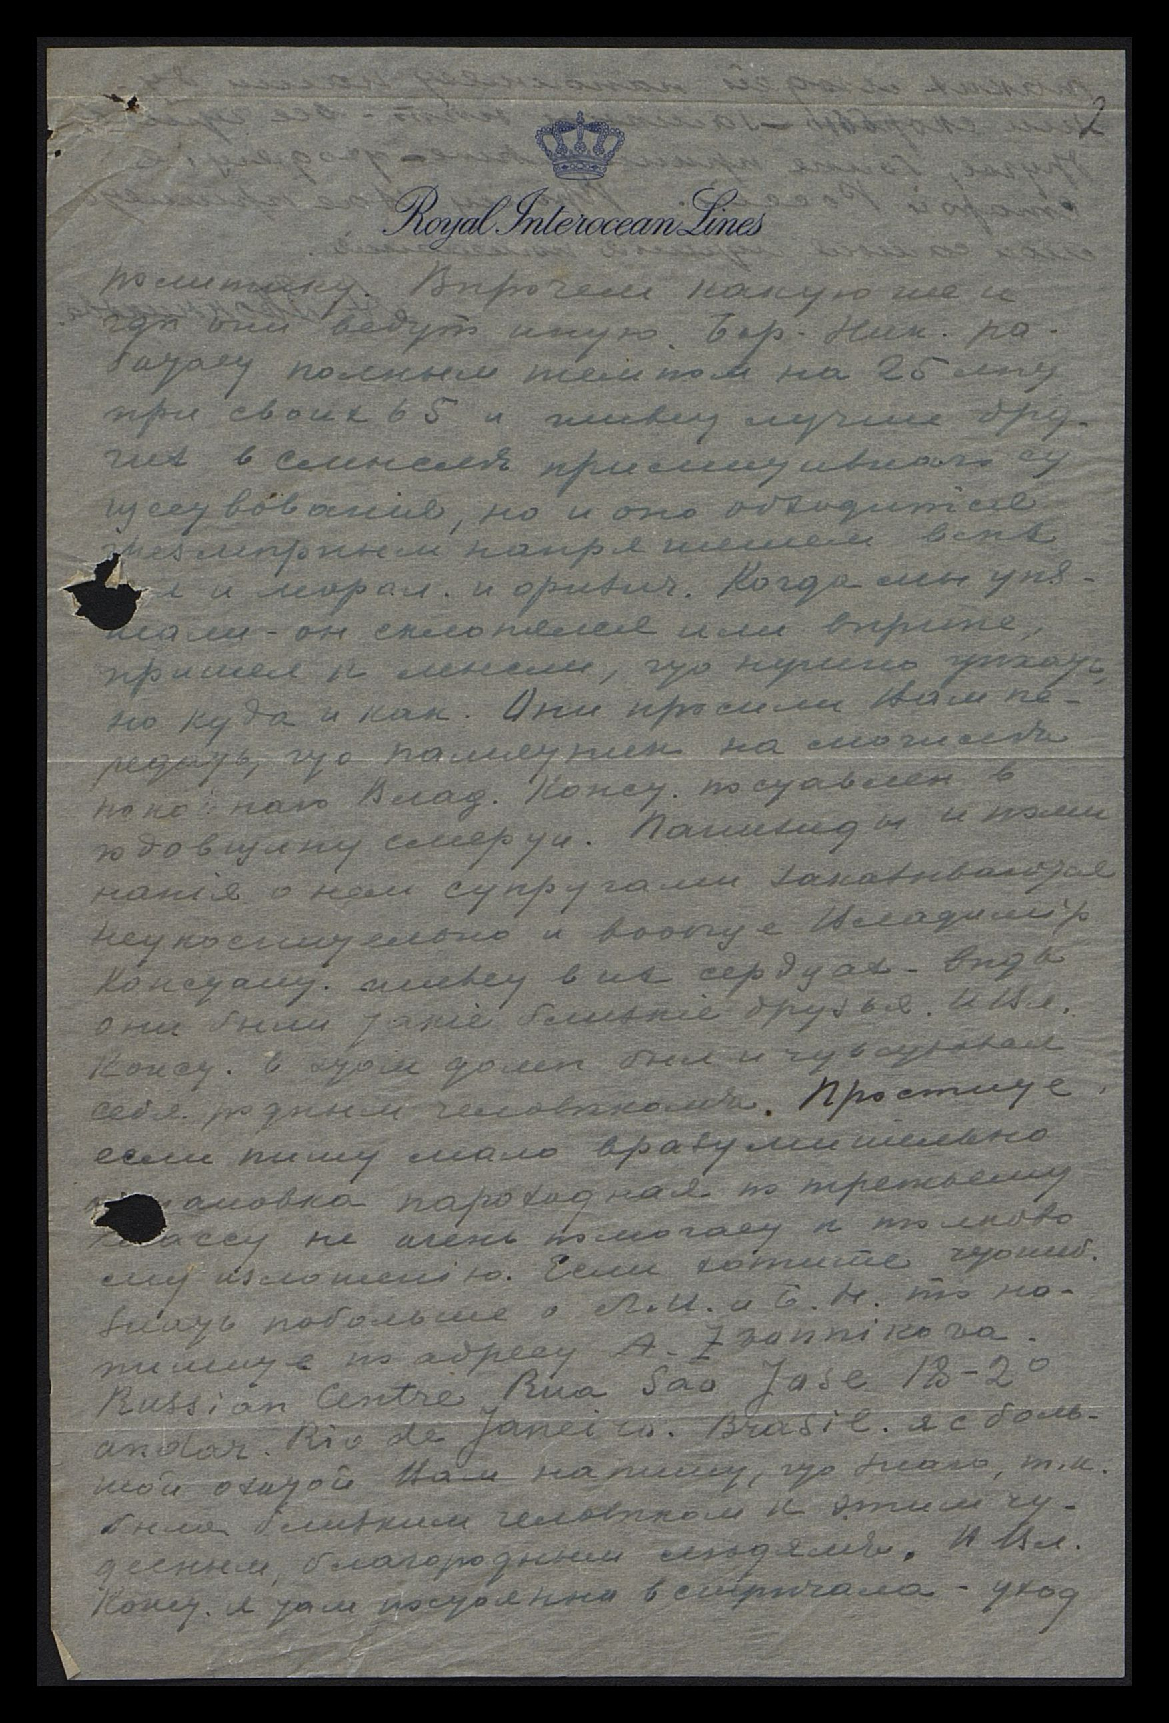 2
Royal Interocean Lines
политику. Впрочем какую же и
где они ведут иную. Бор. Ник. ра-
ботает полным темпом на 25 лет
при своих 65 и живет лучше дру-
гих в смысле примитивнаго су
ществования, но и оно обходится
чрезмерным напряжением всех
и морал. и физич. Когда мы уез-
жали - он склонялся или вернее,
пришел к мысли, что нужно уехать,
но куда и как. Они просили Вам пе-
редать, что памятник на могиле
покойнаго Влад. Конст. поставлен в
годовщину смерти. Панихиды и поми
нания о нем супругами заказываются
неукоснительно и вообще Владимiр
Константи. живет в их сердцах - ведь
они были такiе близкiе друзья. И Вл.
Конст. в этом доме был и чувствовал
себя родным человеком. Простите,
если пишу мало вразумительно
обстановка пароходная по третьему
классу не очень помогает к толково
му изложенiю. Если хотите что ниб.
знать побольше о Л.М. и Б. Н. то на-
пишите по адресу A. Zvonnikova.
Russian Centre Rua Sao Jose 18-2º
andar. Rio de Janeiro. Brasil. я с боль-
шой охотой Вам напишу, что знаю, т.к.
была близким человеком к этим чу-
десным, благородным людям. И Вл.
Конст. я там постоянно встречала - уход